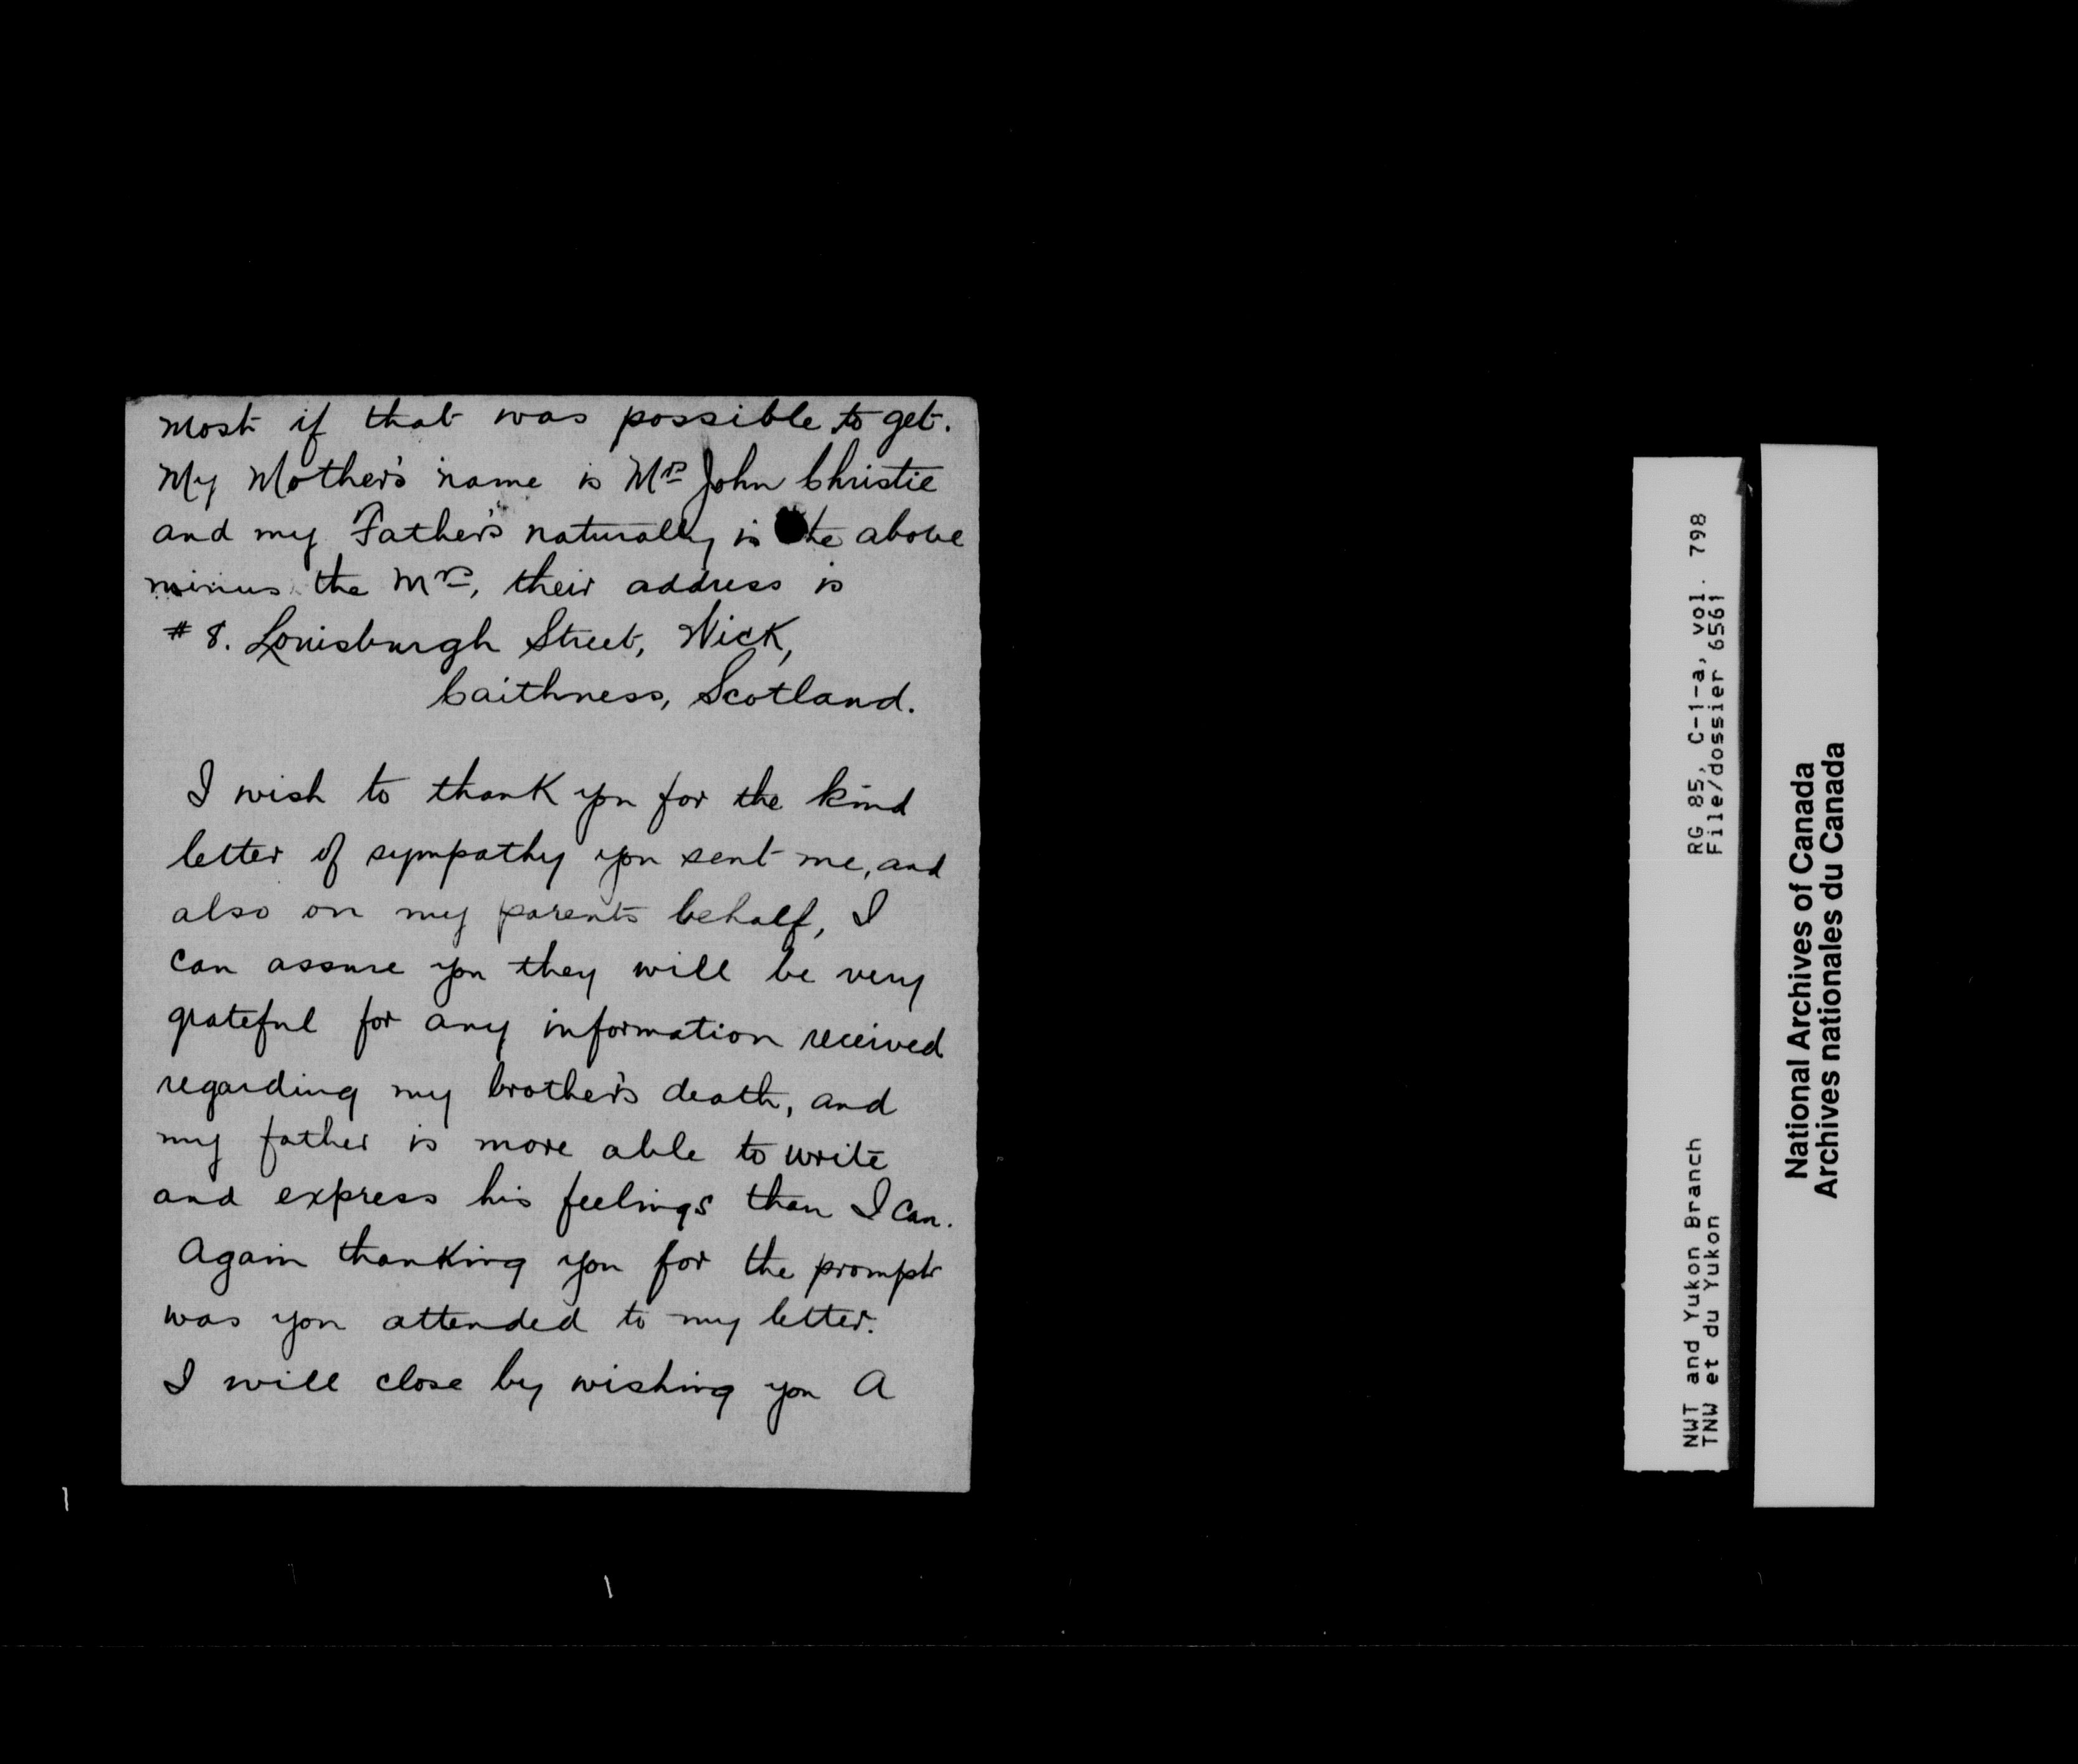 most if that was possible to get.
My Mother's name is Mrs John Christie
and my Father's naturally is the above
minus the Mrs, their address is
# 8. Louisburgh Street, Wick,
Caithness, Scotland.
I wish to thank you for the kind
letter of sympathy you sent me, and
also on my parents behalf, I
can assure you they will be very
grateful for any information received
regarding my brother's death, and
my father is more able to write
and express his feelings than I can.
Again thanking you for the prompt
was you attended to my letter.
I will close by wishing you A
RG 85, C-1-a, vol. 798
File/dossier 6561
NWT and Yukon Branch
TNW et du Yukon
National Archives of Canada
Archives nationales du Canada